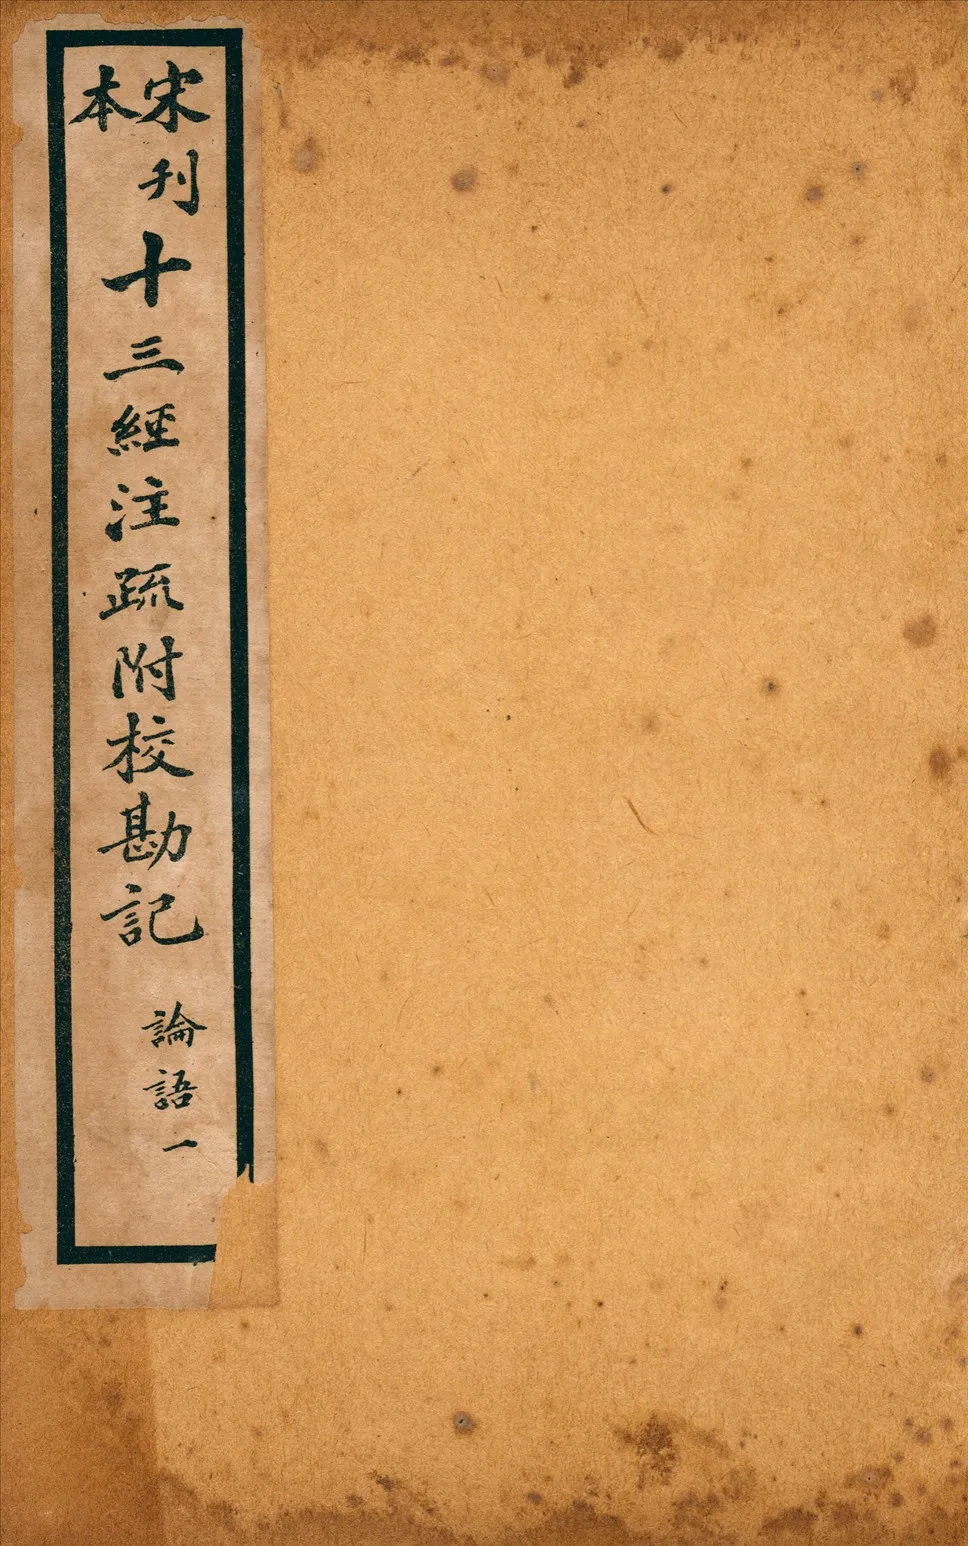 宋刊
本
十三經注疏附校勘記
論語一